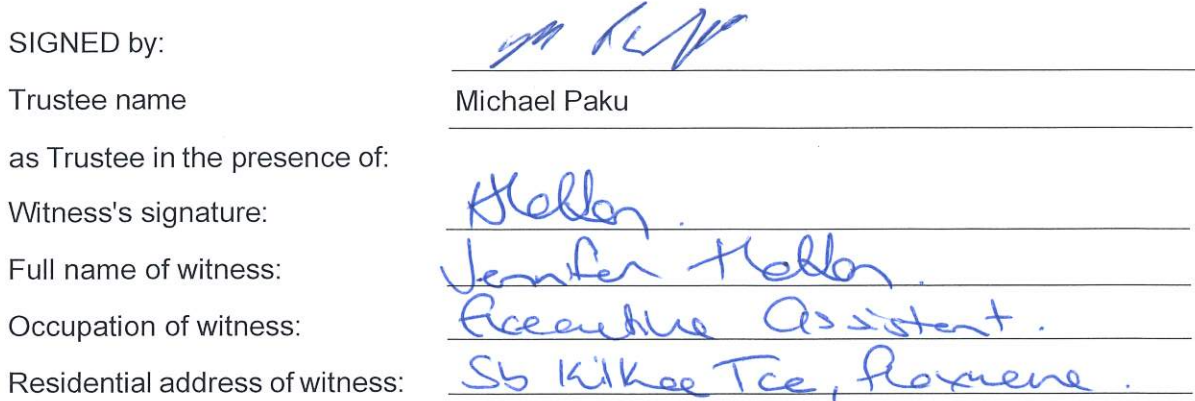 SIGNED by:
Trustee name Michael Paku
as Trustee in the presence of:
Witness's signature:
Full name of witness: Jennifer
Occupation of witness: Executive Assistant.
Residential address of witness: 5b Kilkee Tce, Flaxmere.